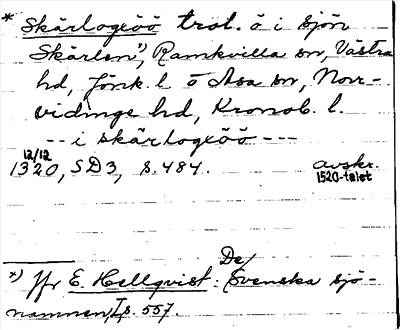 * Skärlogöö trol. ö i sjön
Skärlen*), Ramkvilla sn, Västra
hd, Jönk. l o Asa sn, Norr-
vidinge hd, Kronob. l.
-- i skärlogöö ---
12/12
1320, SD3, s. 484. avskr.
1520-talet
*) Jfr E. Hellqvist: De
Svenska sjö-
namnen, I, s. 557.